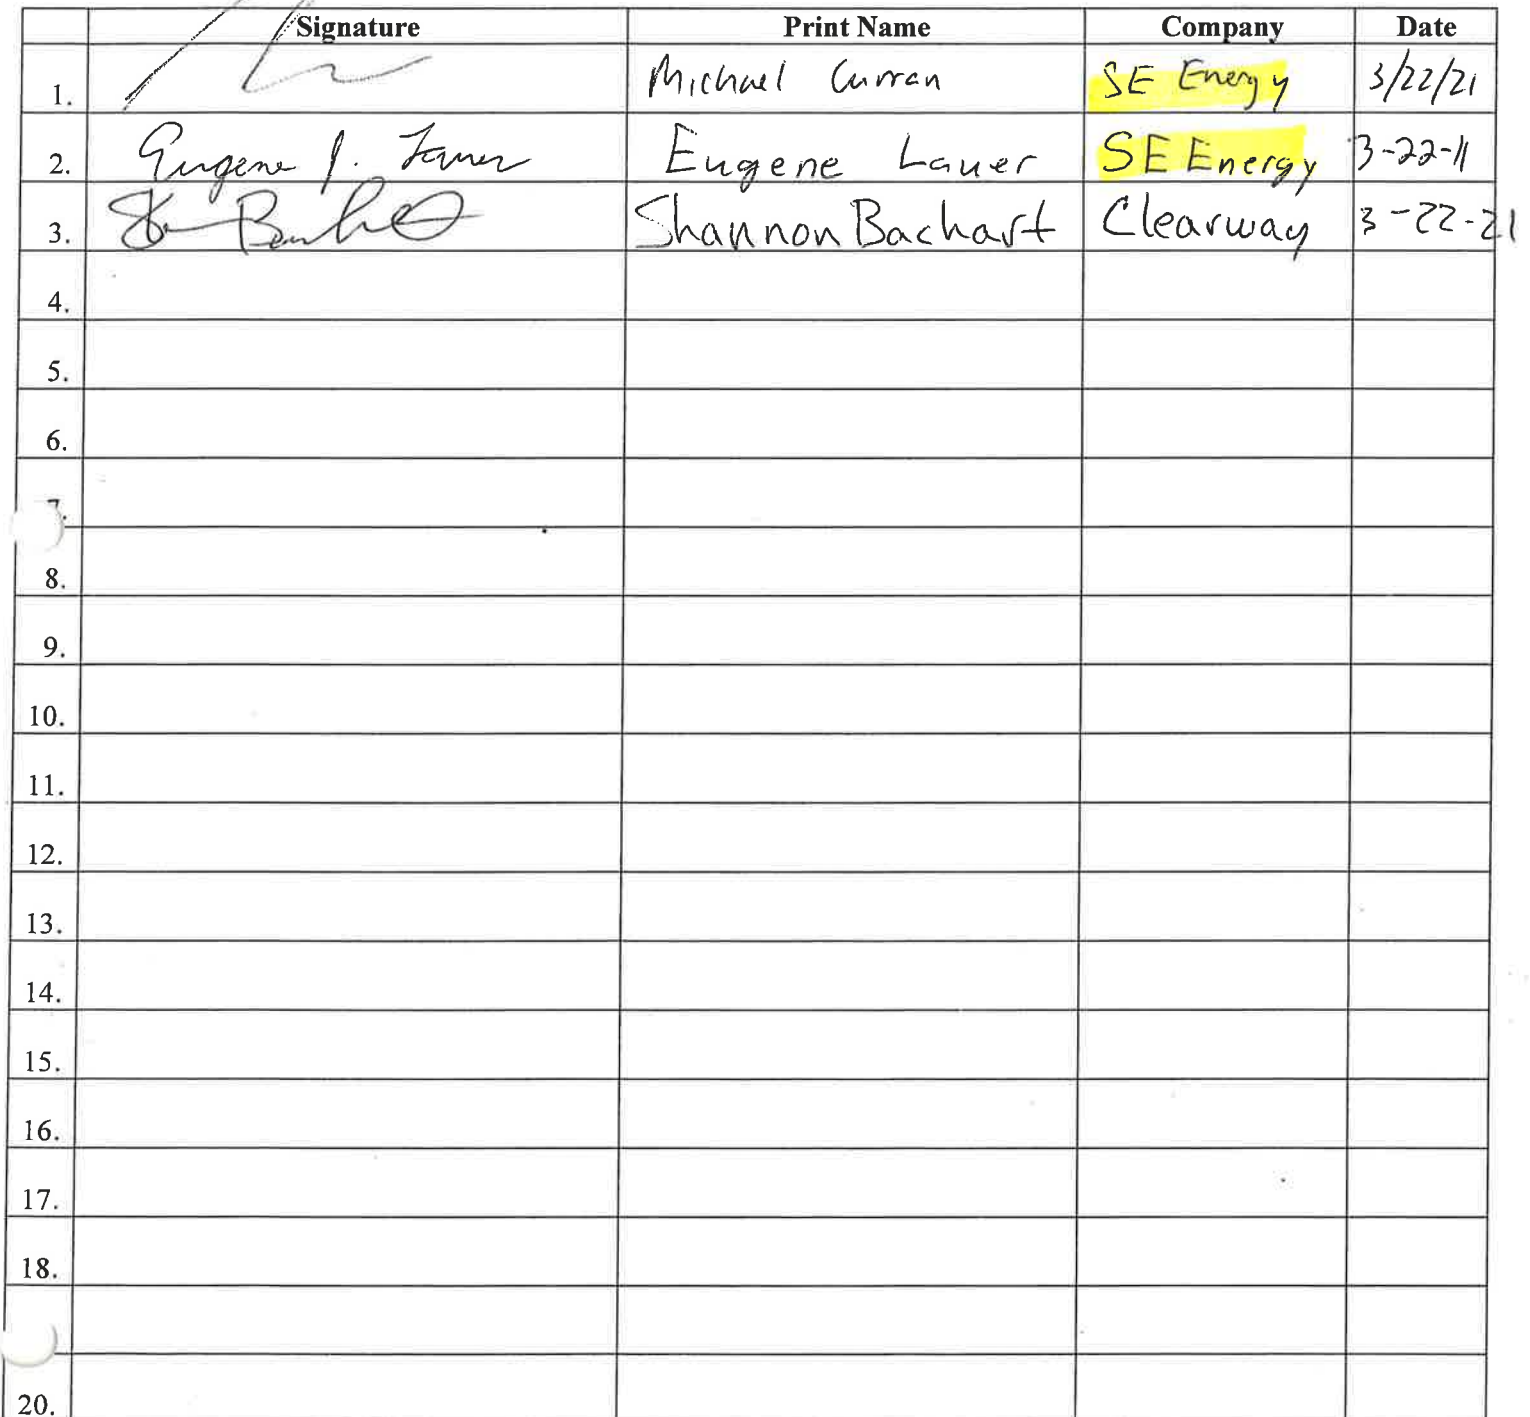 Signature Print Name Company Date
1. Michael Curran SE Energy 3/22/21
2. Eugene J. Lauer Eugene Lauer SE Energy 3-22-11
3. Shannon Bachart Clearway 3-22-21
4.
5.
6.
7.
8.
9.
10.
11.
12.
13.
14.
15.
16.
17.
18.
20.